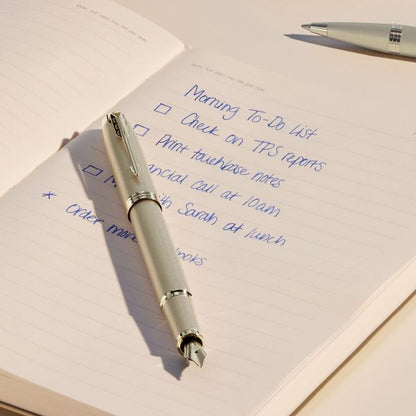 Morning To-Do List
Check on TPS reports
Print touchbase notes
ancial call at 10am
M ith Sarah at lunch
* order more ooks